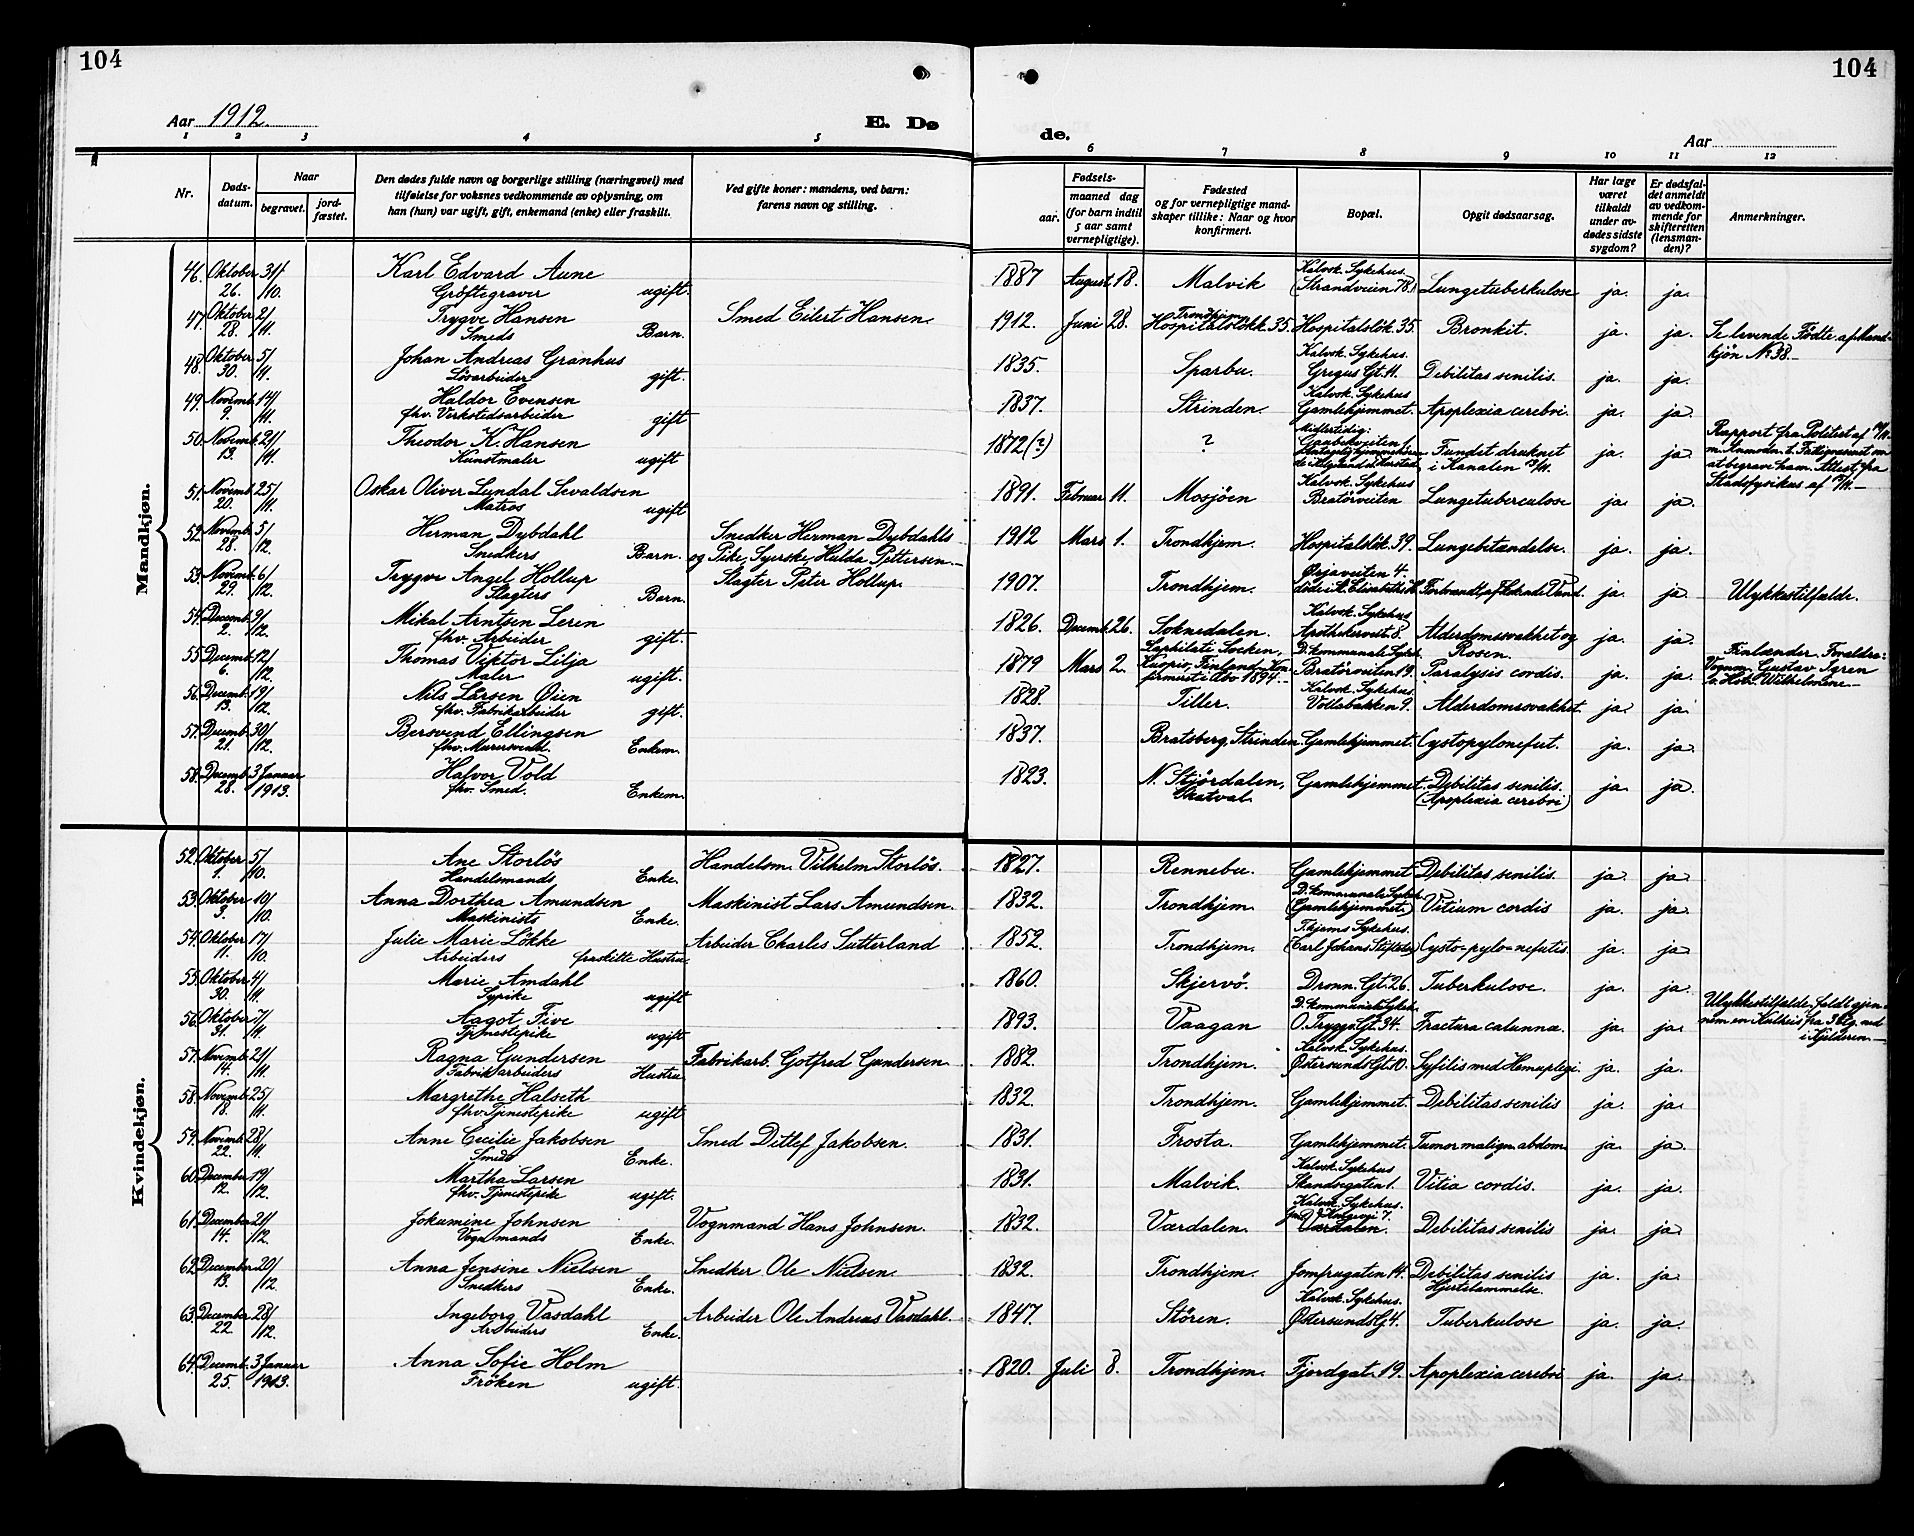 104
104
Aar 1912.
E. Dø
de.
Aar
1 2 3 4 5 6 7 8 9 10 11 12
Nr.
Døds-
datum.
Naar
begravet.
jord-
fæstet.
Den dødes fulde navn og borgerlige stilling (næringsvei) med
tilføielse for voksnes vedkommende av oplysning, om
han (hun) var ugift, gift, enkemand (enke) eller fraskilt.
Ved gifte koner: mandens, ved barn:
farens navn og stilling.
Fødsels-
aar.
maaned dag
(for barn indtil
5 aar samt
vernepligtige).
Fødested
og for vernepligtige mand-
skaper tillike: Naar og hvor
konfirmert.
Bopæl.
Opgit dødsaarsag.
Har læge
været
tilkaldt
under av-
dødes sidste
sygdom?
Er dødsfal-
det anmeldt
av vedkom-
mende for
skifteretten
(lensman-
den)?
Anmerkninger.
Mandkjøn.
46. Oktober 26. 31/10. Karl Edvard Aune
Gröftegraver ugift. 1887 August 18. Malvik Kalvsk. Sykehus. (Strandveien 78.) Lungetuberkulose ja. ja.
47. Oktober 28. 2/11. Trygve Hansen
Smeds Barn. Smed Eilert Hansen. 1912. Juni 28. Trondhjem Hospitalslökk. 35. Hospitalslök. 35. Bronkit. ja. ja. Se levende Födte af Mand-
kjön No 38.
48. Oktober 30. 5/11. Johan Andreas Granhus
Løsarbeider gift. 1835. Sparbu. Kalvsk. Sykehus. Gregus Gt. 11. Debilitas senilis. ja. ja.
49. Novemb. 9. 14/11. Haldor Evensen
fhv. Verkstedsarbeider gift 1837. Strinden. Kalvsk. Sykehus Gamlehjemmet. Apoplexia cerebri. ja. ja.
50. Novemb. 13. 21/11. Theodor K. Hansen
Kunstmaler ugift 1872(?) ? Midlertidig: Fundet druknet
i Kanalen 13/11. ja. ja. Rapport fra Politiet af
m. Anmodn. t. Fattigvæsenet om
at begrave ham. Attest fra
Stadsfysikus af
51. Novemb. 20. 25/11. Oskar Oliver Lundal Sevaldsen
Matros ugift 1891. Februar 11. Mosjöen Kalvsk. Sykehus Bratörveiten Lungetuberculose ja. ja.
52. Novemb. 28. 5/12. Herman Dybdahl
Snedkers Barn. Snedker Herman Dybdahls
og Pike, Syerske Hulda Pettersen. 1912 Mars 1. Trondhjem. Hospitalslök. 39. Lungebetændelse. ja. ja.
53. Novemb. 29. 6/12. Trygve Angel Hollup
Slagters Barn. Slagter Peter Hollup. 1907. Trondhjem. Ørjaveiten 4. döde i St. Elisabeths H. Forbrændt af kokende Vand. ja. ja. Ulykkestilfælde.
54. Decemb. 2. 9/12. Mikal Arntsen Leren
fhv. Arbeider gift. 1826 Decemb. 26. Soknedalen. Kalvsk. Sykehus Apothekerveit. 8. Alderdomssvakhet og
Rosen. ja. ja.
55. Decemb. 6. 12/12. Thomas Viktor Lilja
Maler ugift. 1879 Mars 2. Laphilati Socken,
Kuopio, Finland. Kon-
firmert i Åbo 1894. D. kommunale Sykeh. Bratörveiten 19. Paralysis cordis. ja. ja. Finlænder. Forældre:
Vognm. Gustav Igren
56. Decemb. 13. 19/12. Nils Larsen Öien
fhv. Fabrikarbeider gift. 1828. Tiller. Kalvsk. Sykehus. Vollabakken 9. Alderdomssvakhet ja. ja
57. Decemb. 21. 30/12. Bersvend Ellingsen
fhv. Murersvend Enkem. 1837. Bratsberg, Strinden. Gamlehjemmet. Cystopylonefrit. ja. ja.
58. Decemb. 28. 3 Januar 1913. Halvor Vold
fhv. Smed. Enkem. 1823. N. Stjördalen,
Skatval. Gamlehjemmet. Debilitas senilis.
(Apoplexia cerebri) ja. ja.
Kvindekjøn.
52. Oktober 1. 5/10. Ane Storlös
Handelsmands Enke. Handelsm. Vilhelm Storlös. 1827. Rennebu. Gamlehjemmet Debilitas senilis. ja. ja.
53. Oktober 3. 10/10. Anna Dorthea Amundsen
Maskinists Enke. Maskinist Lars Amundsen. 1832. Trondhjem. D. kommunale Sykeh. (Gamlehjemmet.) Vitium cordis ja. ja.
54. Oktober 11. 17/10. Julie Marie Lökke
Arbeiders fraskilte Hustru. Arbeider Charles Sutterland 1852. Trondhjem. T.hjems Sykehus. (Carl Johans Stiftelse) Cysto-pylo-nefritis ja. ja.
55. Oktober 30. 4/11. Marie Amdahl
Sypike ugift 1860. Skjervö. Dronn. Gt. 26. Tuberkulose. ja. ja.
56. Oktober 31. 7/11. Aagot Five
Tjenestepike ugift 1893. Vaagan D. kommunale Sykeh. O. Tryggv. Gt. 34. Fractura calunna. ja. ja. Ulykkestilfælde, faldt gjen-
nem en Kulheis fra 3 Etg. ned
i Kjelderen.
57. Novemb. 14. 21/11. Ragna Gundersen
Fabrikarbeiders Hustru Fabrikarb. Gotfred Gundersen. 1882. Trondhjem. Kalvsk. Sykehus. Østersunds Gt. 10. Syfilis med Hemuplegi ja. ja.
58. Novemb. 18. 25/11. Margrethe Halseth
fhv. Tjenestepike ugift 1832. Trondhjem. Gamlehjemmet. Debilitas senilis ja. ja.
59. Novemb. 22. 28/11. Anne Cecilie Jakobsen
Smeds Enke. Smed Ditlef Jakobsen. 1831. Frosta. Gamlehjemmet. Tumor malign. abdom. ja. ja.
60. December 12. 19/12. Martha Larsen
fhv. Tjenestepike ugift. 1831. Malvik. Kalvsk. Sykehus Skansegaten 1. Vitia cordis. ja. ja.
61. December 14. 21/12. Jokumine Johnsen
Vognmands Enke. Vognmand Hans Johnsen. 1832. Værdalen. Kalvsk. Sykehus. Værdalen. Debilitas senilis ja. ja.
62. December 13. 20/12. Anna Jensine Nielsen
Snedkers Enke. Snedker Ole Nielsen. 1832. Trondhjem. Jomfrugaten 14. Debilitas senilis
Hjertelammelse. ja. ja.
63. December 22. 28/12. Ingeborg Vasdahl
Arbeiders Enke. Arbeider Ole Andreas Vasdahl. 1847. Stören. Kalvsk. Sykehus. Østersunds G. 4. Tuberkulose ja. ja.
64. Decemb. 25. 3 Januar 1913. Anna Sofie Holm
Fröken ugift. 1820. Juli 8. Trondhjem. Fjordgat. 19. Apoplexia cerebri ja. ja.